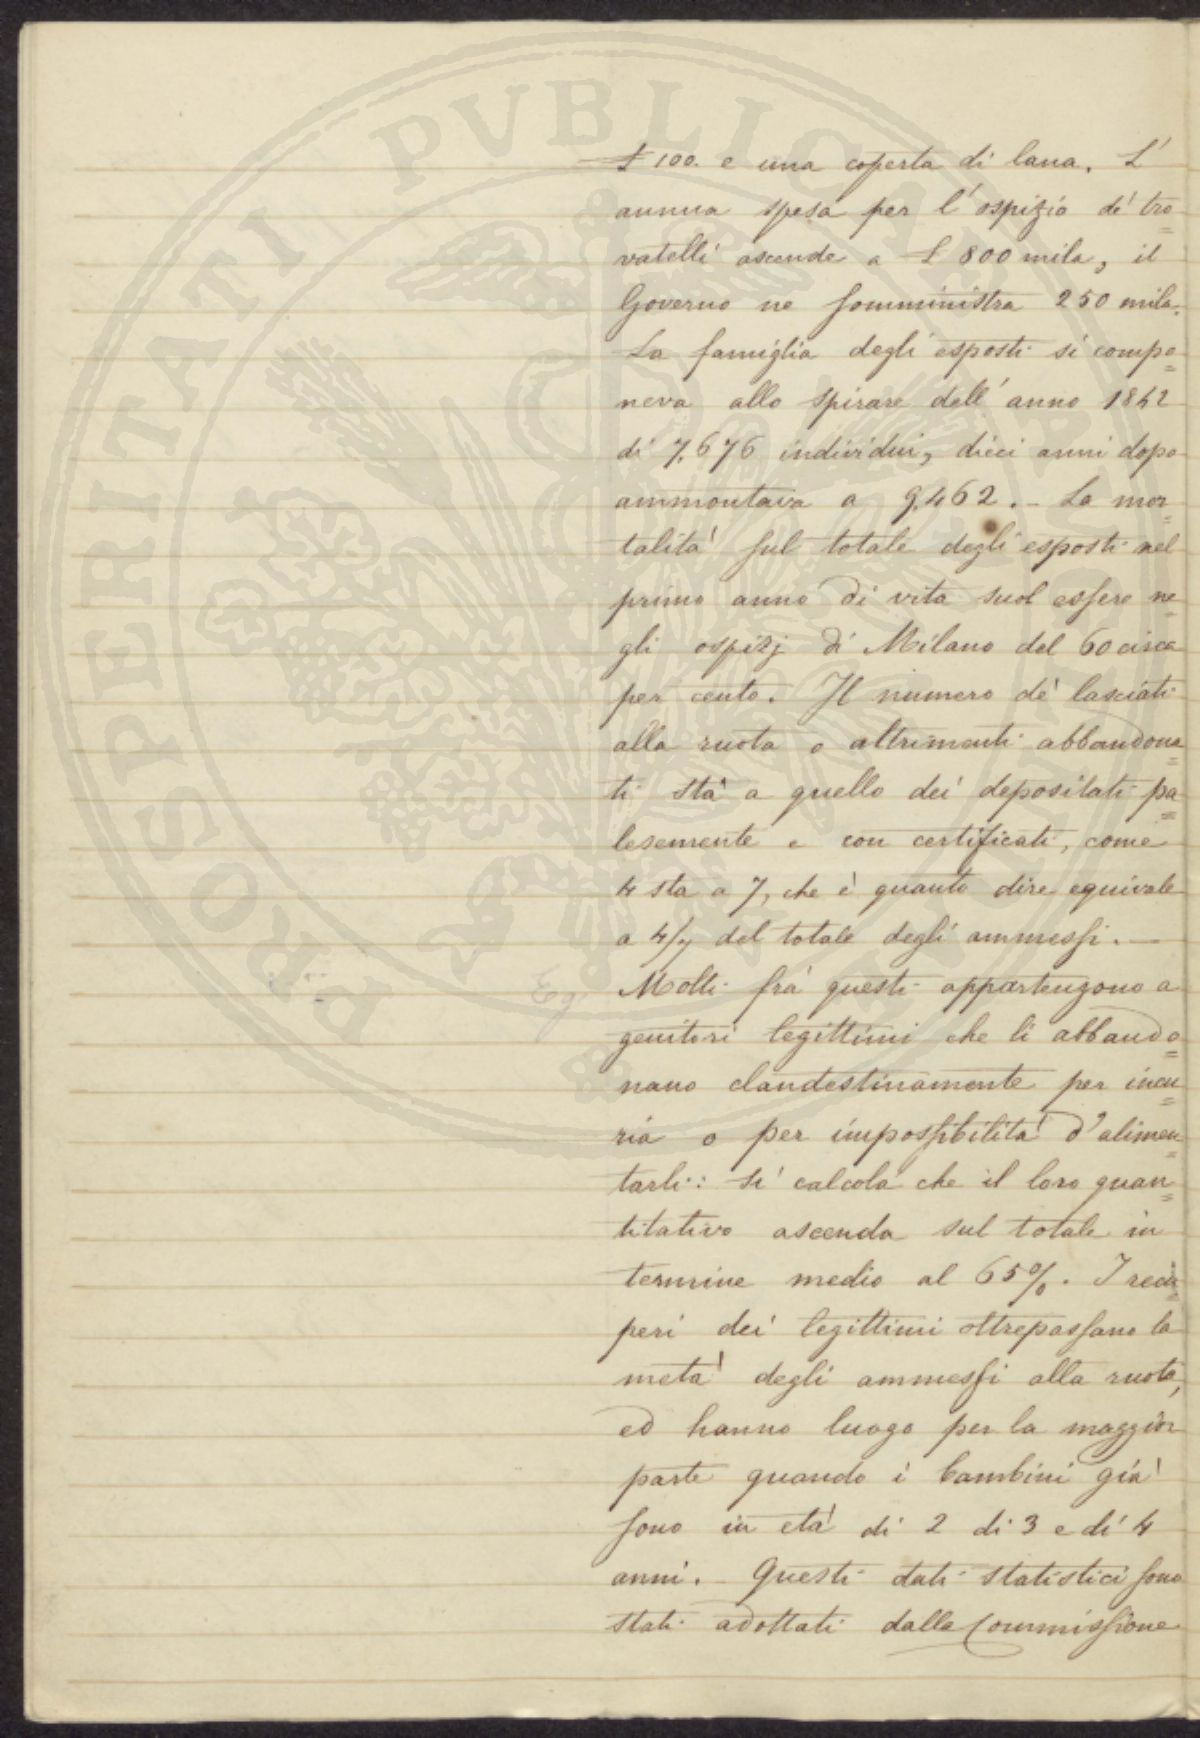 £ 100. e una coperta di lana. L'
annua spesa per l'ospizio de' tro=
vatelli ascende a £ 800 mila, il
Governo ne somministra 250 mila.
La famiglia degli esposti si compo=
neva allo spirare dell'anno 1842
di 7,676 individui, dieci anni dopo
ammontava a 9,462. - La mor=
talità sul totale degli esposti nel
primo anno di vita suol essere ne=
gli ospizj di Milano del 60 circa
per cento. Il numero de' lasciati
alla ruota o altrimenti abbandona=
ti stà a quello dei depositati pa=
lesemente e con certificati, come
4 sta a 7, che è quanto dire equivale
a 4/7 del totale degli ammessi. —
Molti frà questi appartengono a
genitori legittimi che li abbando=
nano clandestinamente per incu=
ria o per impossibilità d'alimen=
tarli: si calcola che il loro quan=
titativo ascenda sul totale in
termine medio al 65%. I recu=
peri dei legittimi oltrepassano la
metà degli ammessi alla ruota,
ed hanno luogo per la maggior
parte quando i bambini già
sono in età di 2 di 3 e di 4
anni. Questi dati statistici sono
stati adottati dalla Commissione
PROSPERITATI PVBLICAE